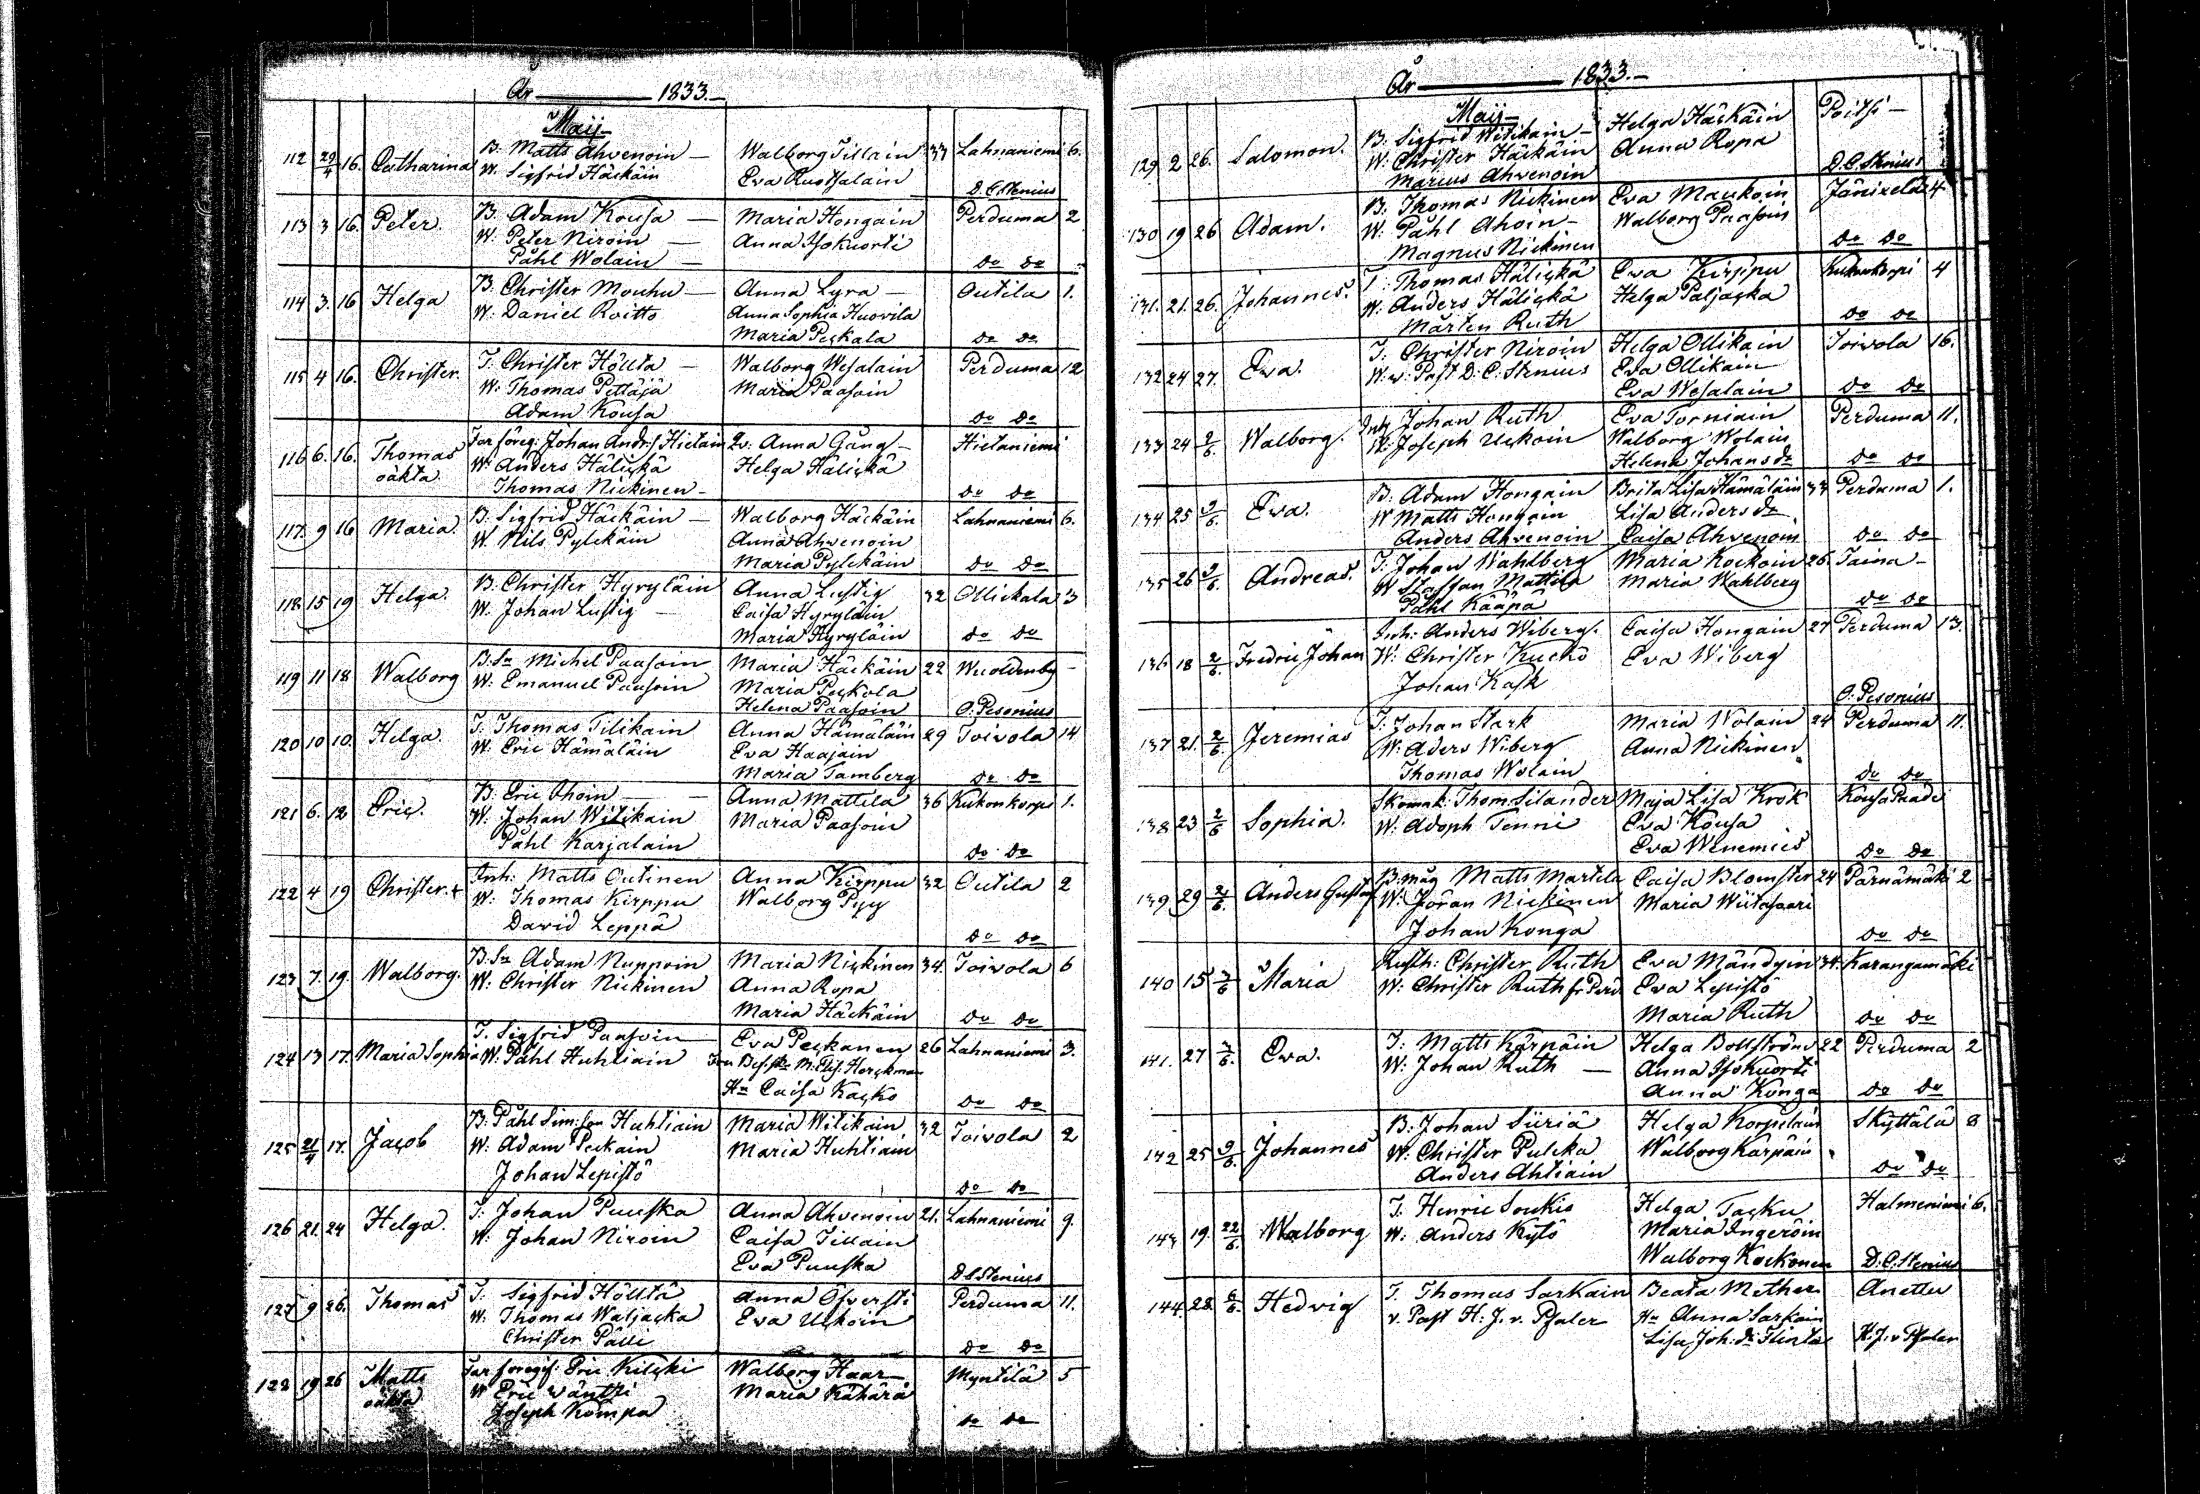 År 1833.
Maij
112 29/4 16. Catharina B. Matts Ahvenoin Walborg Tillain 33 Lahnaniemi 6.
W. Sigfrid Häckäin Eva Ruotsalain
D. C. Stenius
113 3 16. Peter. B. Adam Kousa Maria Hongain Perduma 2
W. Peter Niroin Anna Isokuorti
Påhl Wolain Do Do
114 3. 16 Helga B. Christer Mouhu Anna Lyra Outila 1.
W. Daniel Roitto Anna Sophia Huovila
Maria Peckala Do Do
115 4 16. Christer. T. Christer Höltta Walborg Wesalain Perduma 12
W. Thomas Pettäjä Maria Paasoin
Adam Kousa Do Do
116 6. 16. Thomas Far föreg: Johan Andr:s Hietain Qv. Anna Gång Hietaniemi
oäkta W. Anders Hälickä Helga Hälickä
Thomas Nickinen Do Do
117. 9 16 Maria. B. Sigfrid Häckäin Walborg Häckäin Lahnaniemi 6.
W. Nils Pylckäin Anna Ahvenoin
Maria Pylckäin Do Do
118 15 19 Helga B. Christer Hyryläin Anna Lustig 32 Ollickala 3
W. Johan Lustig Caisa Hyryläin
Maria Hyryläin Do Do
119 11 18 Walborg B. Sn Michel Paasoin Maria Häckäin 22 Wuoldenby
W. Emanuel Paasoin Maria Peckola
Helena Paasoin O. Pesonius
120 10 10. Helga T. Thomas Tilikain Anna Hämäläin 29 Toivola 14
W. Eric Hämäläin Eva Haajain
Maria Tamberg Do Do
121 6. 12 Eric. B. Eric Ahoin Anna Mattila 36 Kukonkorpi 1.
W. Johan Witikain Maria Paasoin
Påhl Karjalain Do Do
122 4 19 Christer. + Inh: Matts Outinen Anna Kirppu 32 Outila 2
W. Thomas Kirppu Walborg Pyy
David Leppä Do Do
123 7. 19. Walborg. B. Sn Adam Nuppoin Maria Nickinen 34. Toivola 6
W. Christer Nickinen Anna Ropa
Maria Häckäin Do Do
124 13 17. Maria Sophia T. Sigfrid Paasoin Eva Peckanen 26 Lahnaniemi 3.
W. Påhl Huhtiain M. Elis. Herckman
Hu Caisa Kacko Do Do
125 21/4 17. Jacob B. Påhl Sim:son Huhtiain Maria Witikain 32 Toivola 2
W. Adam Peckain Maria Huhtiain
Johan Lepistö Do Do
126 21. 24 Helga. T. Johan Puuska Anna Ahvenoin 21. Lahnaniemi 9.
W. Johan Niroin Caisa Tillain
Eva Puuska D C Stenius
127 9 26. Thomas T. Sigfrid Hölttä Anna Öfversti Perduma 11.
W. Thomas Waljacka Eva Uckoin
Christer Pälli Do Do
128 19 26 Matts Far föregif: Eric Kilcki Walborg Haar Myntilä 5
oäkta W Eric Wäntzi Maria Kähärä
Joseph Kompa Do Do
År 1833.
Maij
129. 2 26. Salomon. B. Sigfrid Witikain Helga Häckäin Poitsi
W. Christer Häckäin Anna Ropa
Marcus Ahvenoin D. C. Stenius
130 19 26 Adam. B. Thomas Nickinen Eva Maukoin Jänixelä 4
W. Påhl Ahoin Walborg Paasoin
Magnus Nickinen Do Do
131. 21. 26. Johannes. T. Thomas Hälickä Eva Kirppu Kukonkorpi 4
W. Anders Hälickä Helga Paljacka
Mårten Ruth Do Do
132 24 27. Eva. T. Christer Niroin Helga Ollikain Toivola 16.
W. v. Past D. C. Stenius Eva Ollikain
Eva Wesalain Do Do
133 24 2/6. Walborg. Inh Johan Ruth Eva Torniain Perduma 11.
W. Joseph Uckoin Walborg Wolain
Helena Johans dr Do Do
134 25 9/6. Eva. B. Adam Hongain Brita Lisa Hämäläin 33 Perduma 1.
W Matts Hongain Lisa Anders dr
Anders Ahvenoin Caisa Ahvenoin Do Do
135 26 9/6. Andreas. T. Johan Wahlberg Maria Kockoin 26. Taina
W Staffan Mattila Maria Wahlberg
Påhl Kääpä Do Do
136 18 2/6. Fredric Johan Inh: Anders Wiberg. Caisa Hongain 27 Perduma 13.
W. Christer Kucko Eva Wiberg
Johan Kask O. Pesonius
137 21. 2/6. Jeremias T. Johan Stark Maria Wolain 24 Perduma 11.
W. Aders Wiberg Anna Nickinen
Thomas Wolain Do Do
138 23 2/6 Sophia. Skomak: Thom Silander Maja Lisa Krok
W. Adoph Tenni Eva Kousa
Eva Wenemies Do Do
139 29 2/6. Anders Gustaf B. måg Matts Martila Caisa Blomster 24 Pärnämäki 2
W. Jöran Nickinen Maria Wiitasaari
Johan Konga Do Do
140 15 3/6 Maria Rusth: Christer Ruth Eva Mändyin 34. Karangamäki
W. Christer Ruth fr Perd Eva Lepistö
Maria Ruth Do Do
141. 27 3/6. Eva. T. Matts Kärpäin Helga Bollström 22 Perduma 2
W. Johan Ruth Anna Isokuorti
Anna Konga Do Do
142 25 9/6. Johannes B. Johan Siiriä Helga Korpelain Skyttälä 8
W. Christer Pulcka Walborg Karpäin
Anders Ahtiain Do Do
143 19. 22/6. Walborg T. Henric Soukio Helga Tacku Halmeniemi 6.
W. Anders Kytö Maria Ingeröin
Walborg Kockonen D. C. Stenius
144. 28. 6/6. Hedvig T. Thomas Sarkain Beata Mether Anettu
v. Past H. J. v. Pfaler Hu Anna Sarkain
Lisa Joh: dr H. J. v Pfaler